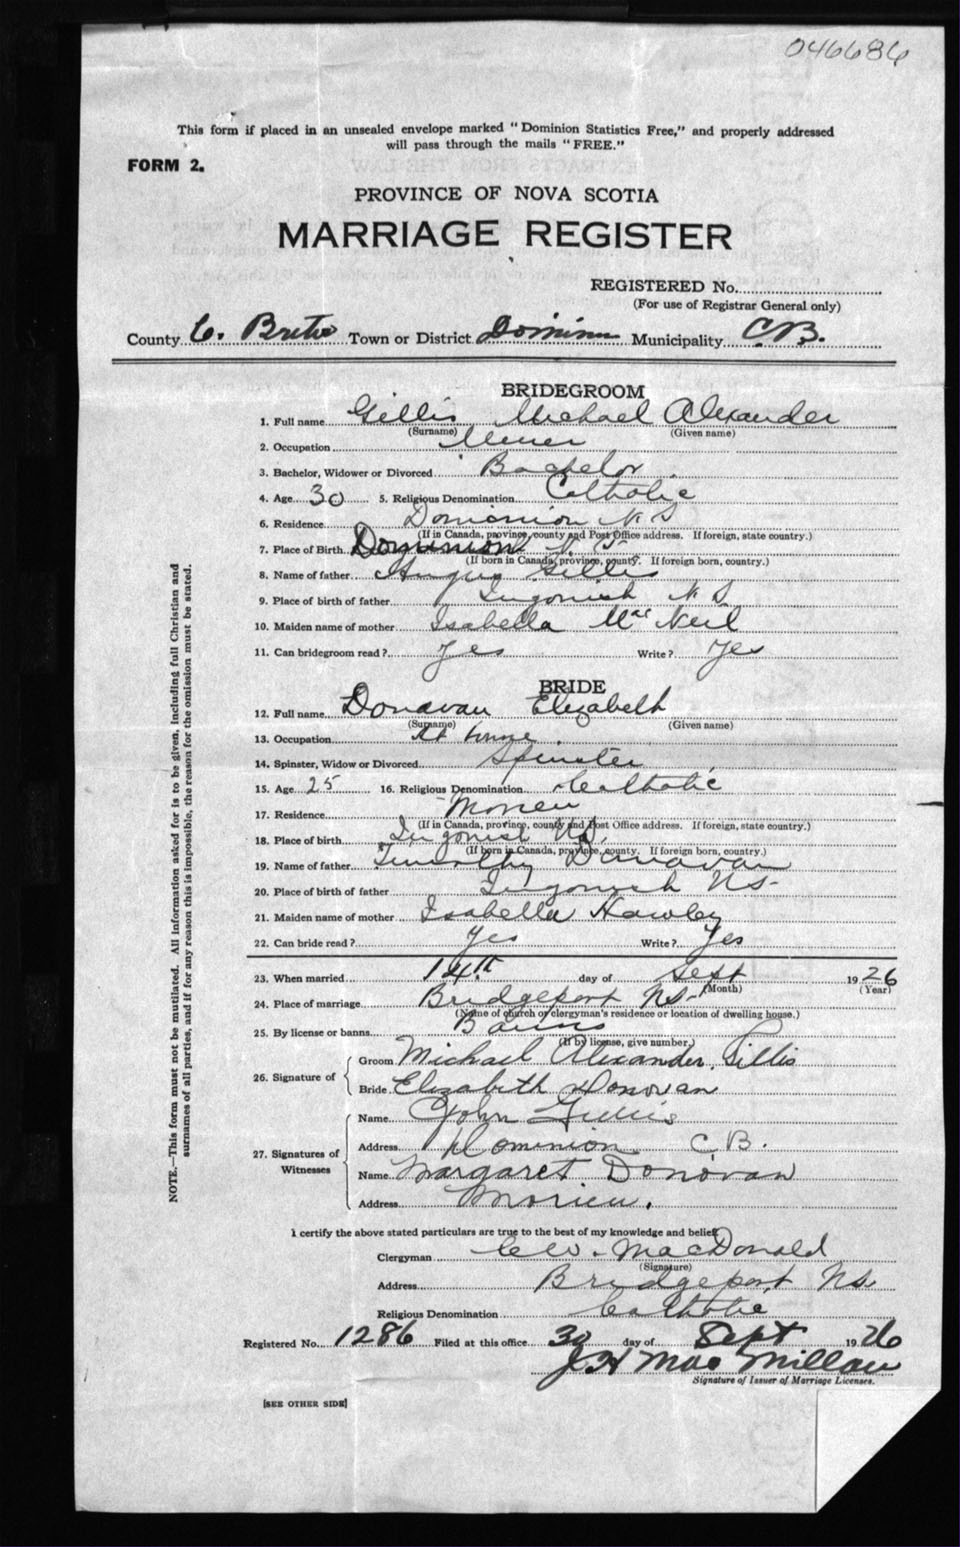 046686
This form if placed in an unsealed envelope marked "Dominion Statistics Free," and properly addressed
will pass through the mails "FREE."
FORM 2.
PROVINCE OF NOVA SCOTIA
MARRIAGE REGISTER
REGISTERED No.
(For use of Registrar General only)
County C. Breton Town or District Dominion Municipality C.B.
BRIDEGROOM
1. Full name Gillis Michael Alexander
(Surname) (Given name)
2. Occupation Miner
3. Bachelor, Widower or Divorced Bachelor
4. Age 30 5. Religious Denomination Catholic
6. Residence Dominion N S
(If in Canada, province, county and Post Office address. If foreign, state country.)
7. Place of Birth Dominion N. S
(If born in Canada, province, county. If foreign born, country.)
8. Name of father Angus Gillis
9. Place of birth of father Ingonish N S
10. Maiden name of mother Isabella Mac Neil
11. Can bridegroom read? Yes Write? Yes
BRIDE
12. Full name Donavan Elizabeth
(Surname) (Given name)
13. Occupation At home
14. Spinster, Widow or Divorced Spinster
15. Age 25 16. Religious Denomination Catholic
17. Residence Morien
(If in Canada, province, county and Post Office address. If foreign, state country.)
18. Place of birth Ingonish NS
(If born in Canada, province, county. If foreign born, country.)
19. Name of father Timothy Donavan
20. Place of birth of father Ingonish NS-
21. Maiden name of mother Isabella Hawley
22. Can bride read? Yes Write? Yes
23. When married 14th day of Sept 1926
(Month) (Year)
24. Place of marriage Bridgeport NS-
(Name of church or clergyman's residence or location of dwelling house.)
25. By license or banns Banns
(If by license, give number.)
26. Signature of Groom Michael Alexander Gillis
Bride Elizabeth Donovan
27. Signatures of Witnesses Name John Gillis
Address Dominion C.B.
Name Margaret Donovan
Address Morien.
I certify the above stated particulars are true to the best of my knowledge and belief.
Clergyman C W. MacDonald
(Signature)
Address Bridgeport Ns.
Religious Denomination Catholic
Registered No. 1286 Filed at this office 30 day of Sept 1926
J H Mac Millan
Signature of Issuer of Marriage Licenses.
[SEE OTHER SIDE]
NOTE.—This form must not be mutilated. All information asked for is to be given, including full Christian and
surnames of all parties, and if for any reason this is impossible, the reason for the omission must be stated.